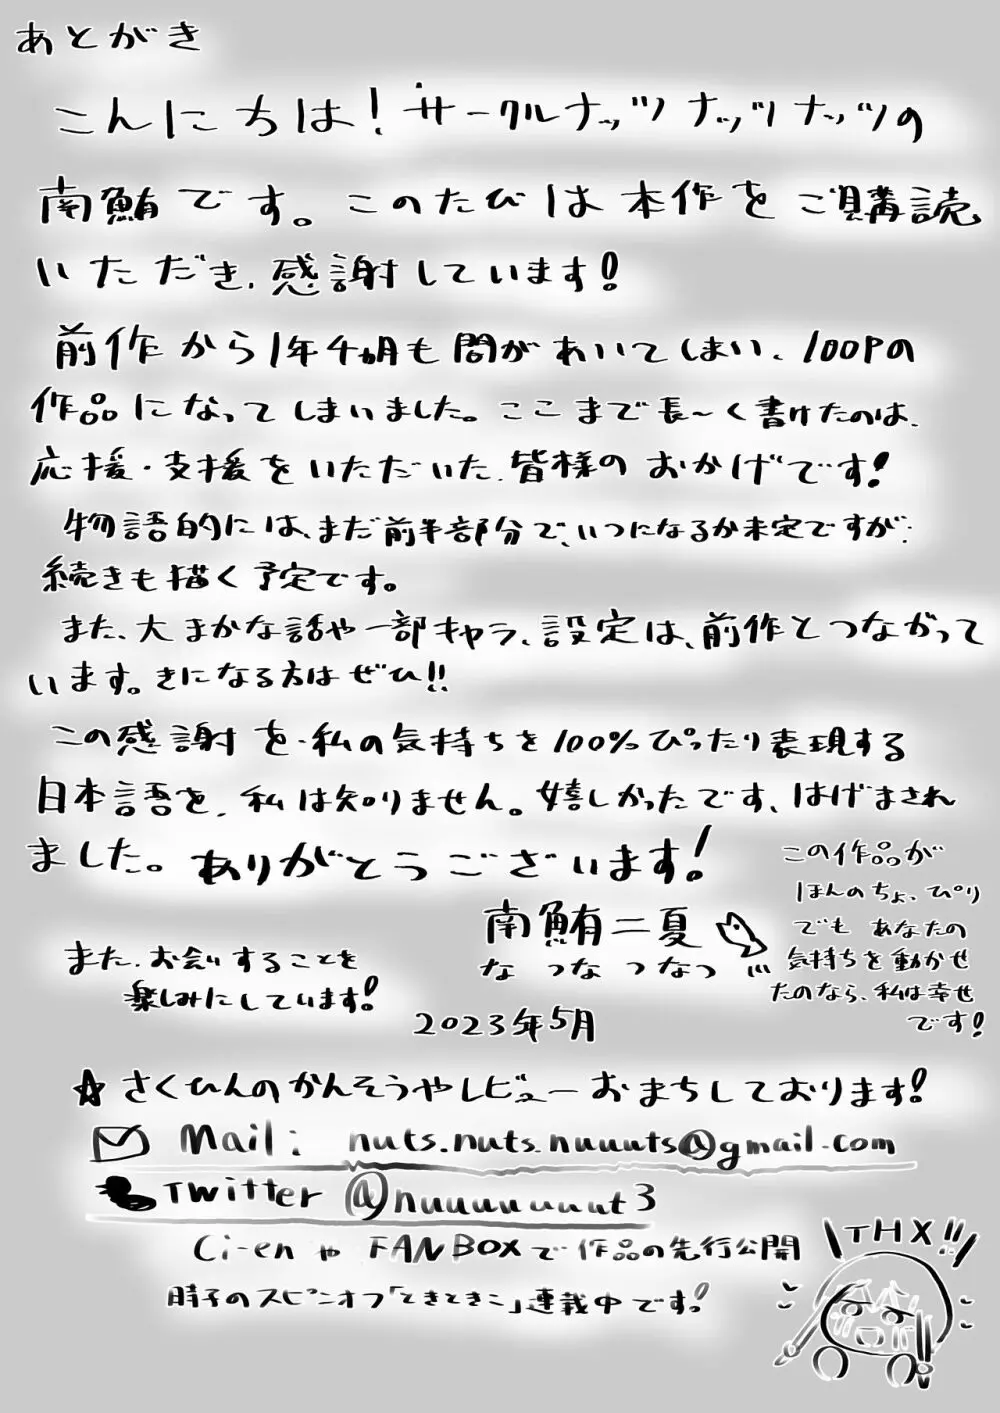 あとがき
こんにちは！サークルナッツナッツナッツの
南鮪です。このたびは本作をご購読
いただき、感謝しています！
前作から1年半期も間があいてしまい、100Pの
作品になってしまいました。ここまで長〜く書けたのは、
応援・支援をいただいた、皆様のおかげです！
物語的には、まだ前半部分で、いつになるか未定ですが、
続きも描く予定です。
また、大まかな話や一部キャラ、設定は、前作とつながって
います。きになる方はぜひ!!
この感謝を、私の気持ちを100%ぴったり表現する
日本語を、私は知りません。嬉しかったです、はげまされ
ました。ありがとうございます！
この作品が
ほんのちょっぴり
でもあなたの
気持ちを動かせ
たのなら、私は幸せ
です！
南鮪二夏
なつなつなつ
2023年5月
また、お会いすることを
楽しみにしています！
☆さくひんのかんそうやレビューおまちしております！
Mail: nuts.nuts.nuuuts@gmail.com
Twitter @nuuuuuuut3
Ci-enやFANBOXで作品の先行公開
時子のスピンオフ「ときときこ」連載中です！
THX!!